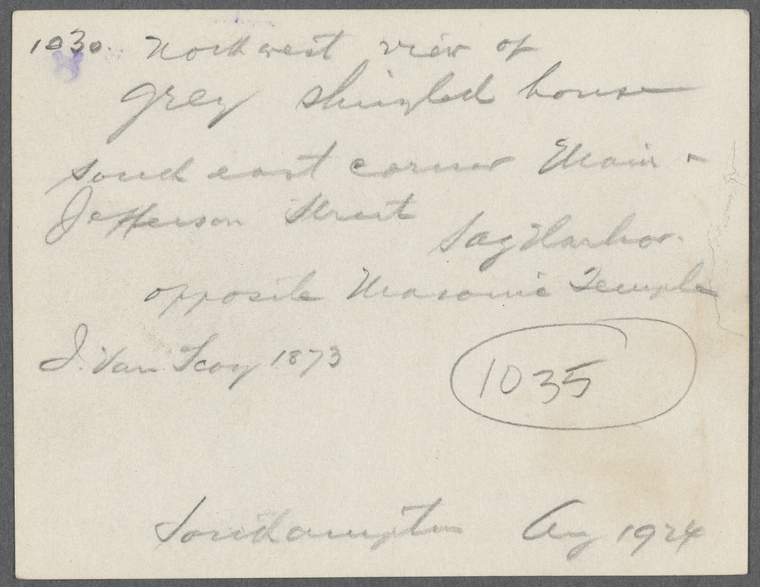 1030. Northwest view of
grey shingled house
south east corner Main &
Jefferson Street
Sag Harbor.
opposite Masonic Temple
J. Van Scoy 1873
1035
Southampton Aug 1924